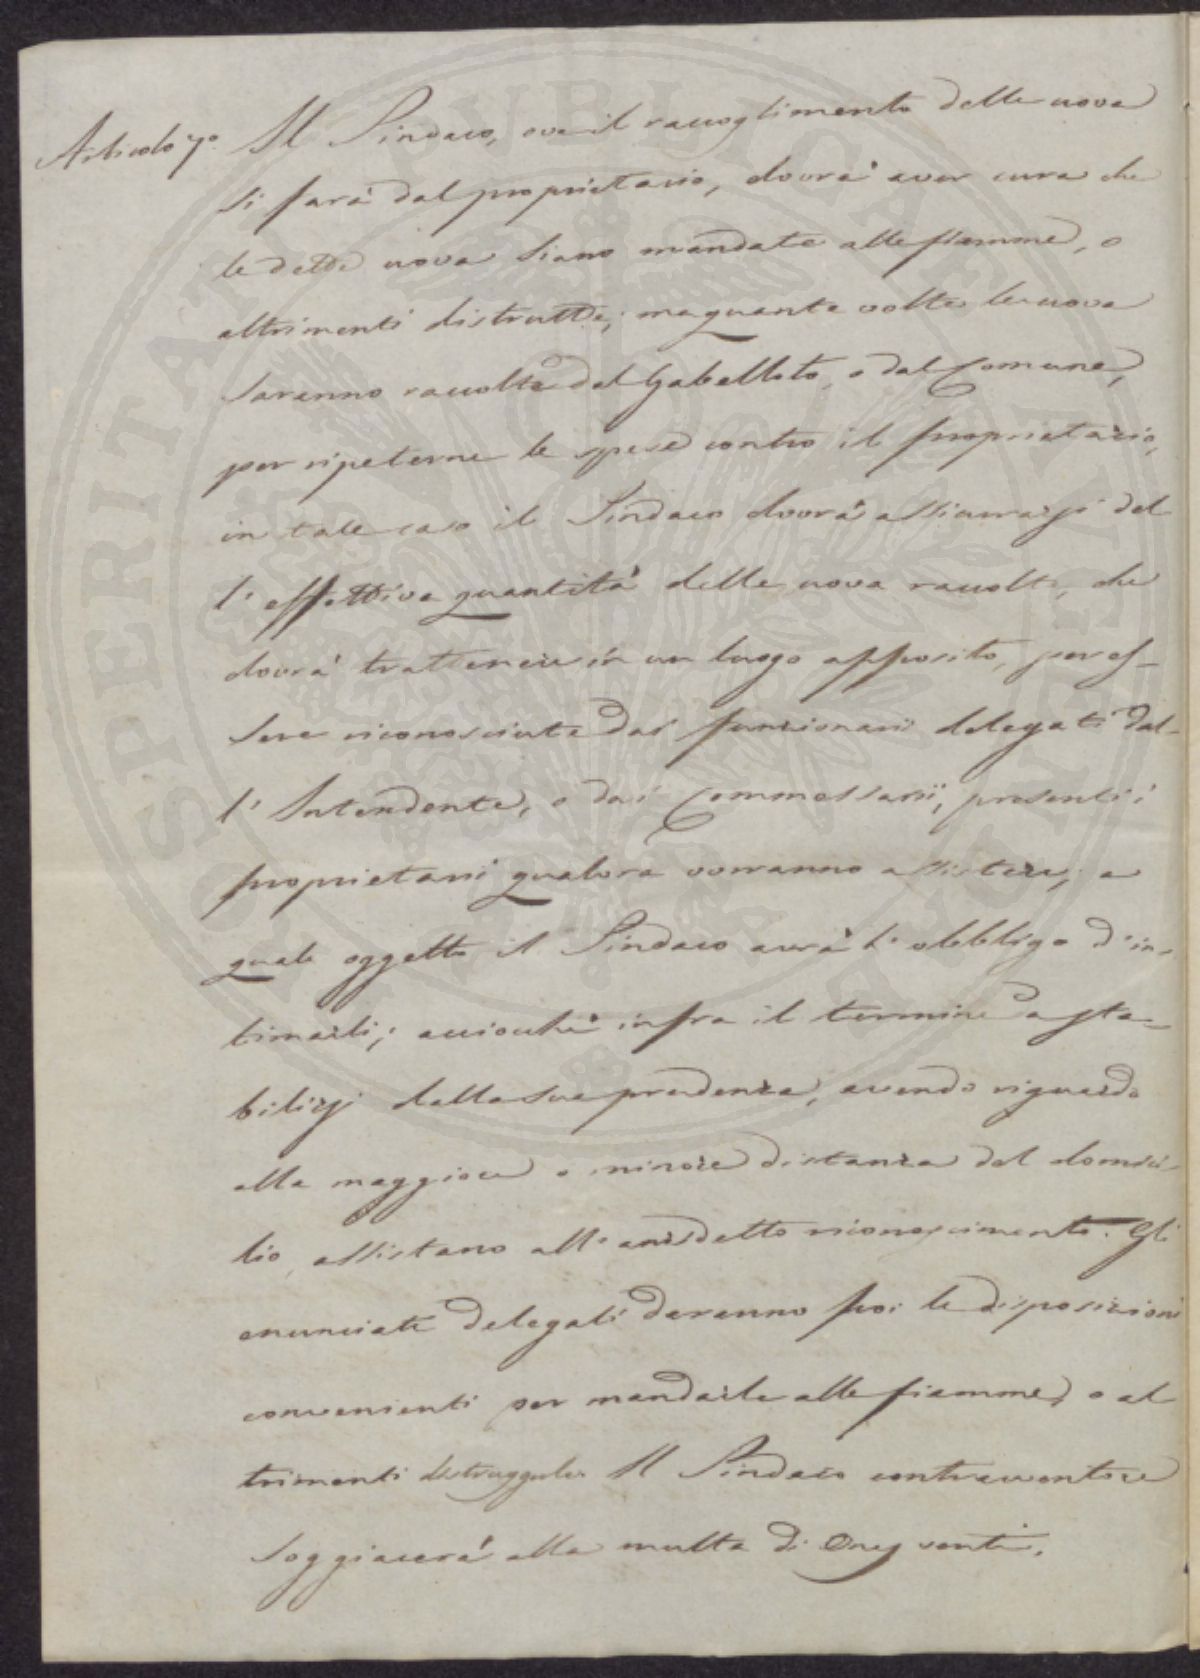 Articolo 7º. Il Sindaco, ove il raccoglimento delle uova
si farà dal proprietario, dovrà aver cura che
le dette uova siano mandate alle fiamme, o
altrimenti distrutte; ma quante volte le uova
saranno raccolte dal Gabelloto, o dal Comune,
per ripeterne le spese contro il proprietario,
in tale caso il Sindaco dovrà assicurarsi del
l'effettiva quantità delle uova raccolte, che
dovrà trattenere in un luogo apposito, per es-
sere riconosciute dai funzionarii delegati dal-
l'Intendente, o dai Commessarii, presenti i
proprietarii qualora vorranno assistere; a
quale oggetto il Sindaco avrà l'obbligo d'in-
timarli; acciocchè infra il termine a sta-
bilirsi dalla sua prudenza, avendo riguardo
alla maggiore o minore distanza del domici-
lio, assistano all'anzidetto riconoscimento. Gli
enunciati delegati daranno poi le disposizioni
convenienti per mandarle alle fiamme, o al
trimenti distruggerle. Il Sindaco contravventore
soggiacerà alla multa di Onze venti.
PROSPERITATI PUBLICAE AUGENDAE